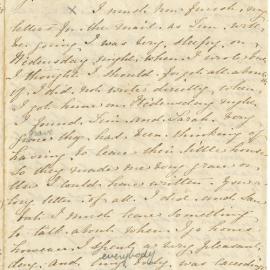 x I must now finish my
letters for the mail as Jim will
be going. I was very sleepy on
Wednesday night when I wrote but
I thought I should forget all about
it if I did not write directly when
I got home on Wednesday night
I found Jim and Sarah very
grave they had been thinking of
having to leave their little house
so they made me very grave or
else I could have written you a
long letter of all I did and saw
but I must leave something
to talk about when I go home
however I spent a very pleasant
day and everybody was